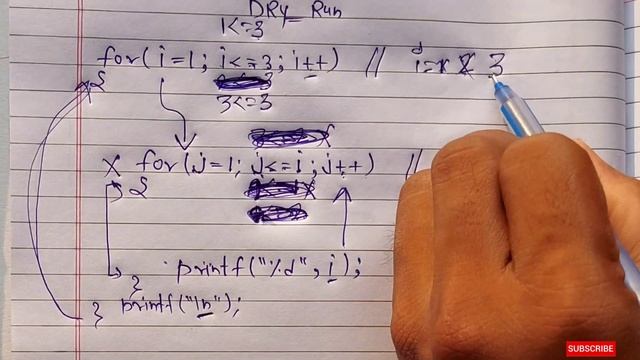 DRY Run
1<=3
for(i=1; i<=3; i++) // i= 3
{
3<=3
for(j=1; j<=i; j++) //
{
printf("%d", i);
}
} printf("\n");
SUBSCRIBE